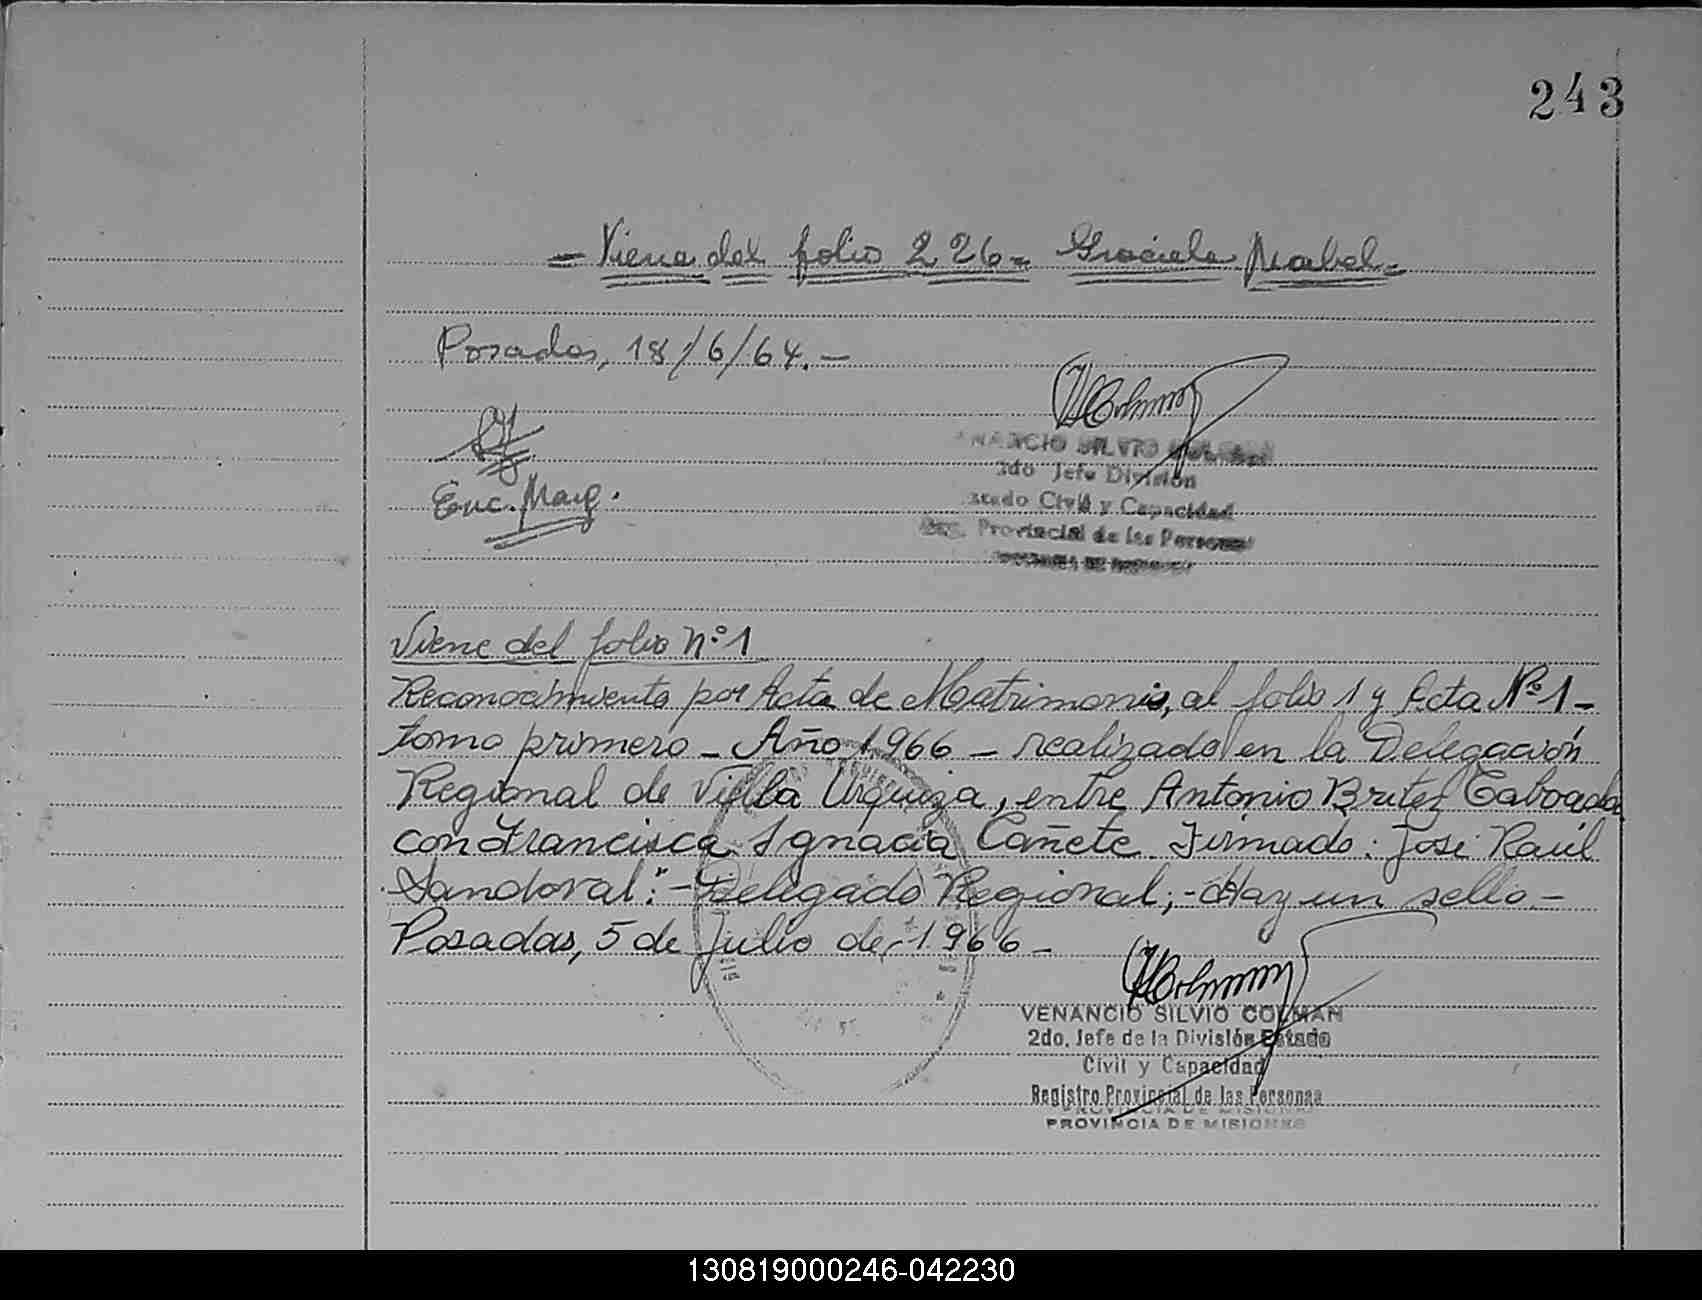 243
= Viene del folio 226 = Graciela Mabel =
Posadas, 18/6/64. -
Enc. Marg.
NANCIO SILVIO
2do Jefe División
stado Civil y Capacidad
Provincial de las Personas
Viene del folio Nº 1
Reconocimiento por Acta de Matrimonio, al folio 1 y Acta Nº 1 -
tomo primero - Año 1966 - realizado en la Delegación
Regional de Villa Urquiza, entre Antonio Britez Taboada
con Francisca Ignacia Cañete. Firmado: José Raúl
Sandoval: - Delegado Regional; - Hay un sello. -
Posadas, 5 de Julio de 1966 -
VENANCIO SILVIO COLMAN
2do. Jefe de la División Estado
Civil y Capacidad
Registro Provincial de las Personas
PROVINCIA DE MISIONES
130819000246-042230